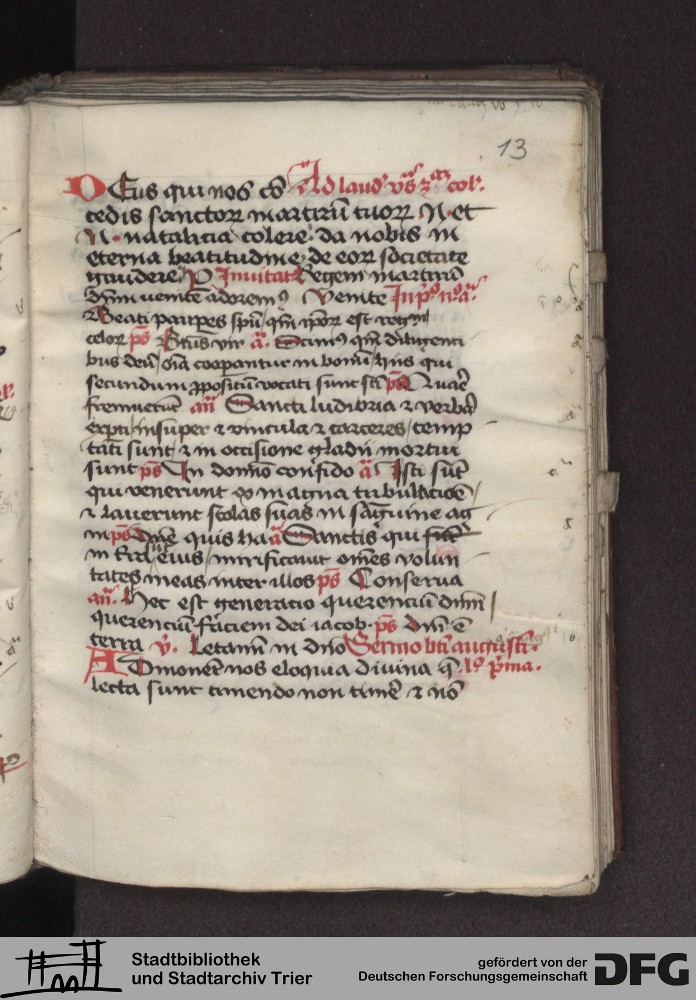 13
DEus qui nos cō Ad laud' v̄s 2 a͞a col'.
cedis sanctoꝝ martirū tuoꝝ N. et
N. natalicia colere. da nobis in
eterna beatitudine. de eoꝝ societate
gaudere. P Inuitat Regem martirū
dn̄m uenite adorem9 Venite In p̊ nō a.
Beati paupes spū qm̄ ipoꝝ est regnū
celoꝝ ps Btūs vir a. Scim9 qm̄ diligenti
bus deū oīa cooperantur in bonū hiis qui
secundum ꝓpositū vocati sunt sc̄i ps Quare
fremuerūt an̄ Sancti ludibria ⁊ verbera
exp̄ti insuper ⁊ vincula ⁊ carceres temp
tati sunt ⁊ in occisione gladii mortui
sunt ps In domīo confido a. Isti sūt
qui venerunt ex magna tribulacioē
⁊ lauerunt stolas suas in sanguine ag
ni ps Dn̄e quis ha a Sanctis qui sūt
in t̄ra eius mirificauit om̄es volun
tates meas inter illos ps Conserua
an̄. Hec est generacio querenciū dn̄m
querenciū faciem dei iacob. ps Dn̄i ē
terra v̄. Letami in dn̄o Sermo bt̄i augusti.
ADmonent nos eloquia diuina q̄ .lō p̄ma.
lecta sunt timendo non timē ⁊ nō
Stadtbibliothek
und Stadtarchiv Trier
gefördert von der
Deutschen Forschungsgemeinschaft
DFG